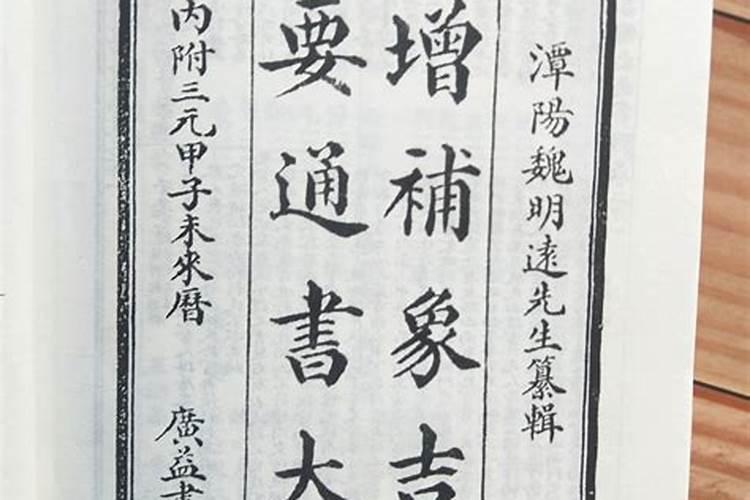 潭陽魏明遠先生纂輯
增補象吉
要通書大
內附三元甲子未來曆
廣益書